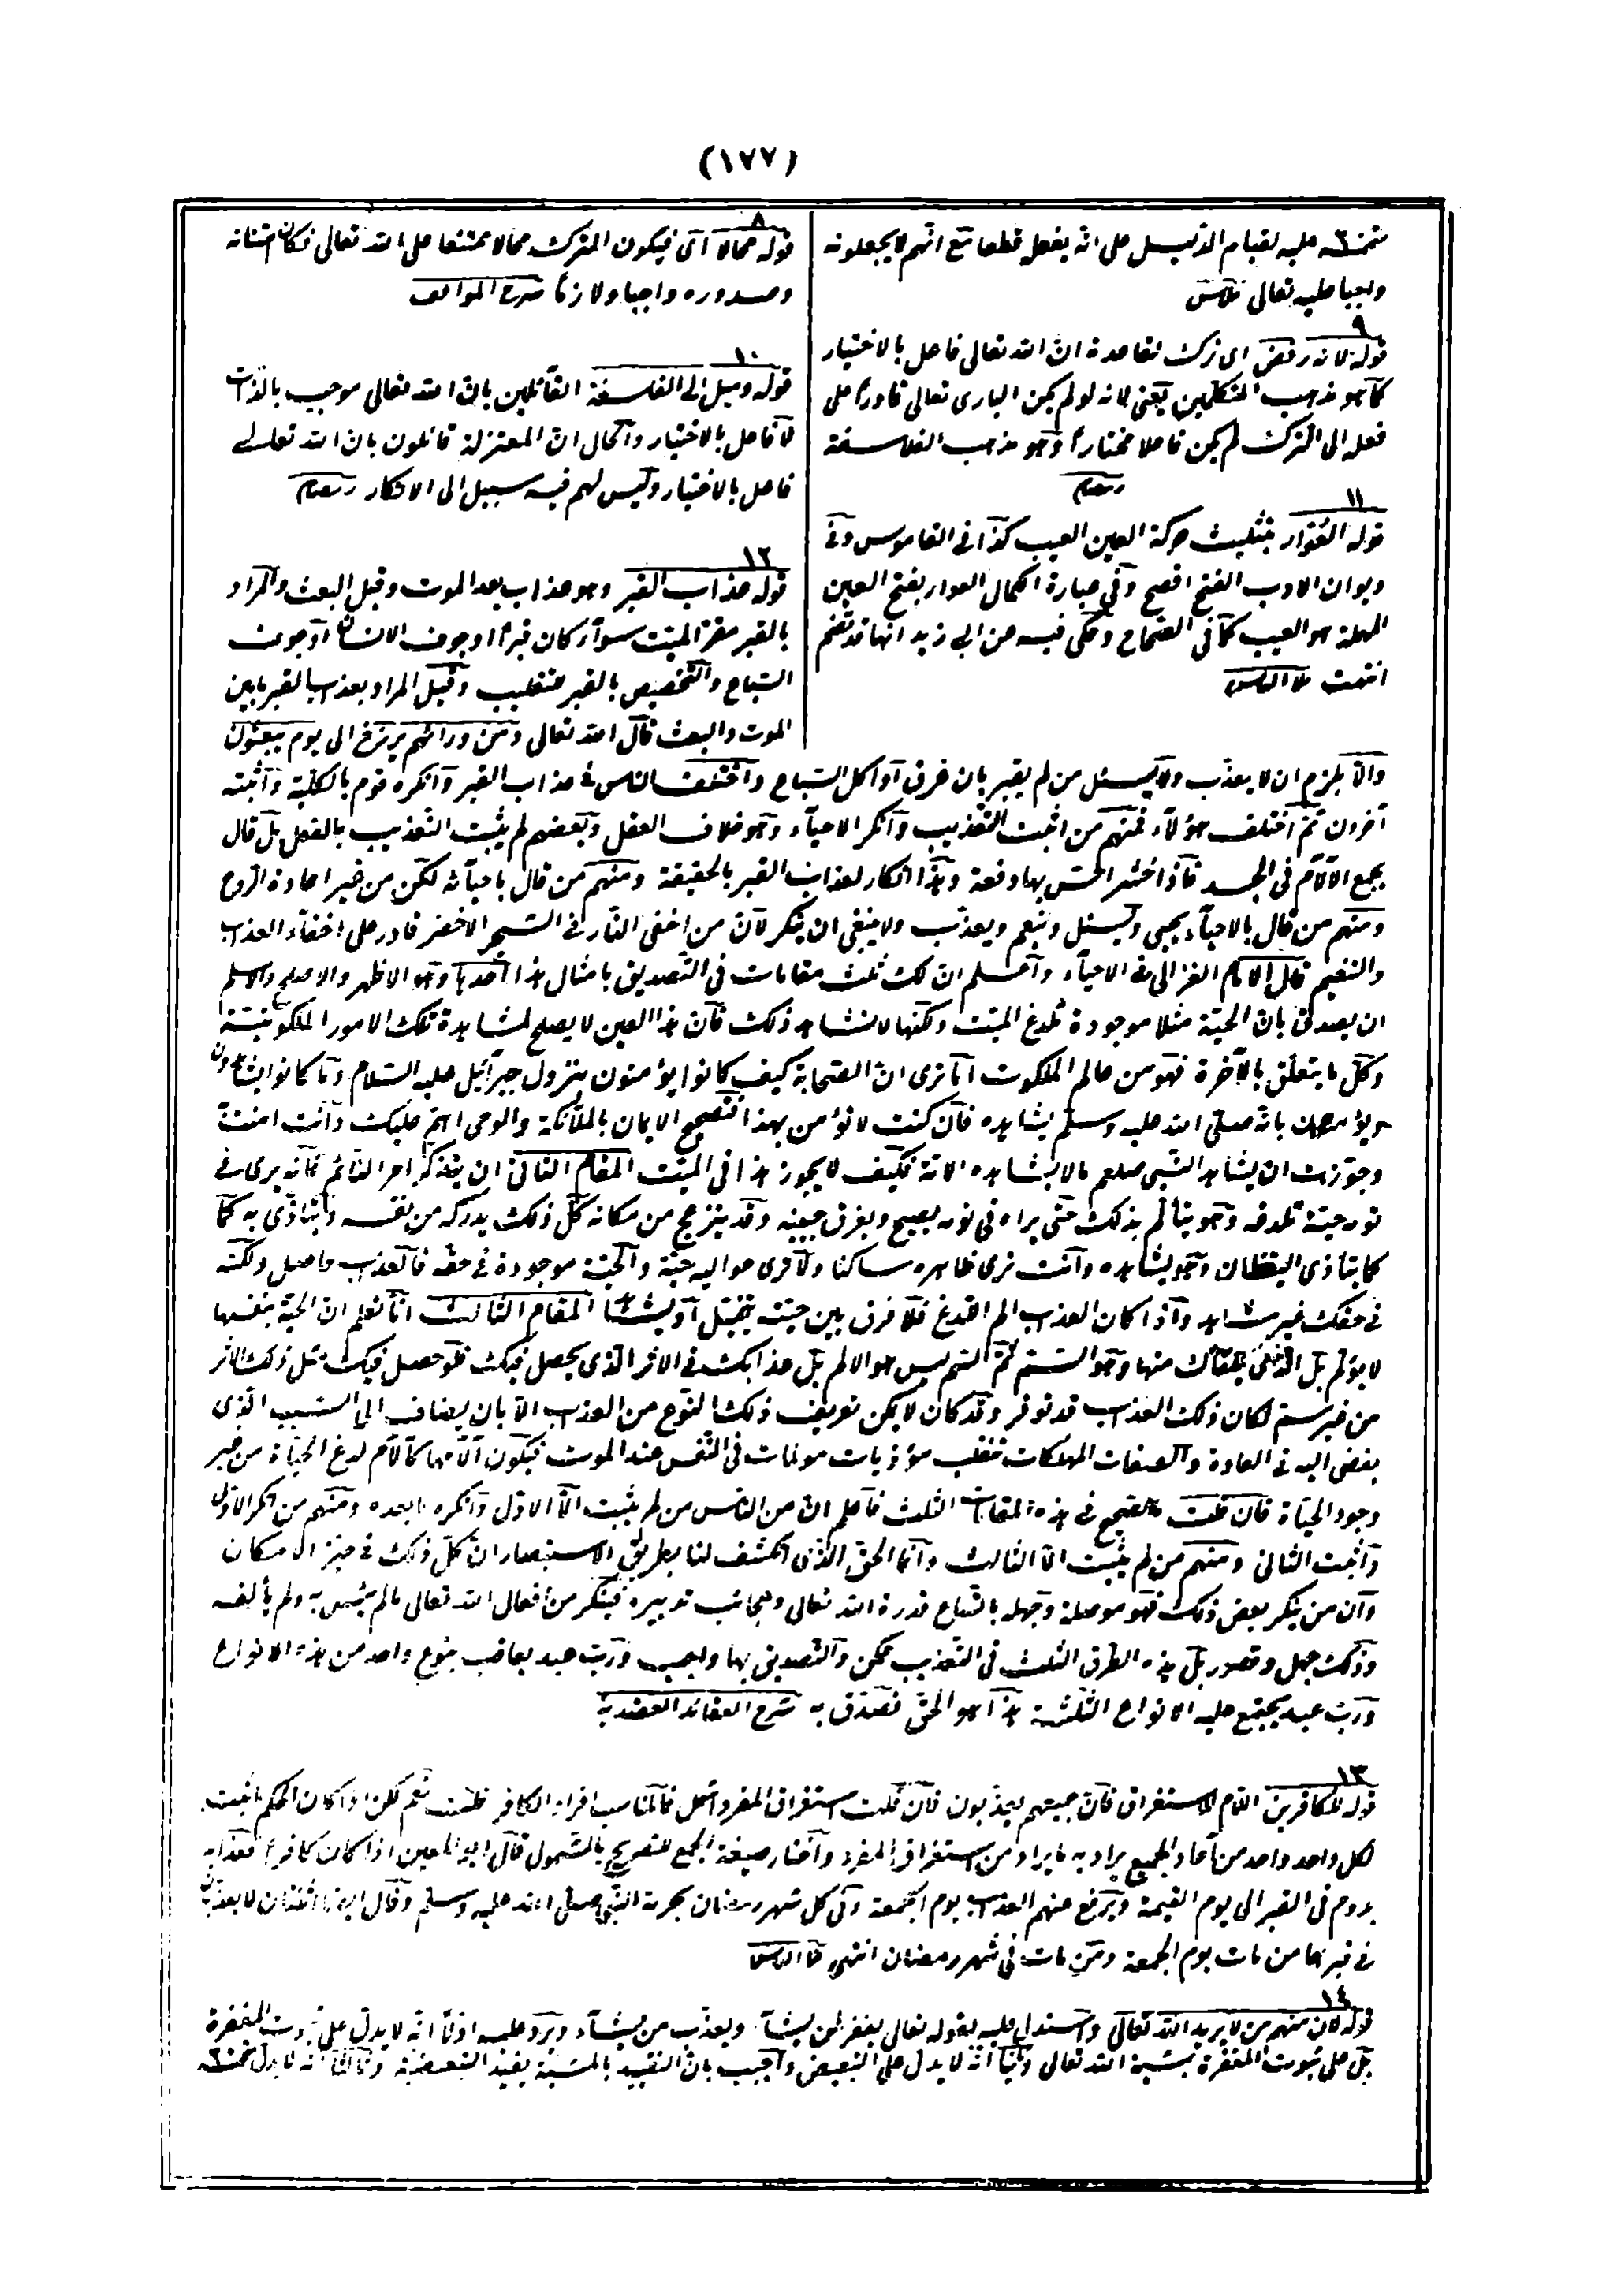 (١٧٧)
عليه لقيام الدليل على انه يفعل قطعا مع انهم لا يجعلونه
واجبا عليه تعالى
٩
قوله لانه رفض اى ترك لقاعدة ان الله تعالى فاعل بالاختيار
كما هو مذهب المتكلمين يعنى لانه لو لم يكن البارى تعالى قادرا على
فعله الى الترك لم يكن فاعلا مختارا وهو مذهب الفلاسفة
رمضان
١١
قوله العوار بتثليث حركة العين العيب كذا فى القاموس وفى
ديوان الادب الفتح افصح وفى عبارة الكمال العوار بفتح العين
المهملة هو العيب كما فى الصحاح وحكى فيه عن ابى زيد انها قد تضم
انتهت
٨
قوله محالا اى فيكون الترك محالا ممتنعا على الله تعالى فكان اتيانه
وصدوره واجبا ولازما شرح المواقف
١٠
قوله وميل الى الفلسفة القائلين بان الله تعالى موجب بالذات
لا فاعل بالاختيار والحال ان المعتزلة قائلون بان الله تعالى
فاعل بالاختيار وليس لهم فيه سبيل الى الانكار رمضان
١٢
قوله عذاب القبر وهو عذاب بعد الموت وقبل البعث والمراد
بالقبر مقر الميت سواء كان قبرا او جوف الانسان او جوف
السباع والتخصيص بالقبر للتغليب وقيل المراد بعذاب القبر ما بين
الموت والبعث قال الله تعالى ومن ورائهم برزخ الى يوم يبعثون
والا يلزم ان لا يعذب ولا يسئل من لم يقبر بان غرق او اكل السباع واختلف الناس فى عذاب القبر وانكره قوم بالكلية واثبته
آخرون ثم اختلف هؤلاء فمنهم من اثبت التعذيب وانكر الاحياء وهو خلاف العقل وبعضهم لم يثبت التعذيب بالفعل بل قال
يجمع الآلام فى الجسد فاذا حشر احس بها دفعة وهذا انكار لعذاب القبر بالحقيقة ومنهم من قال باحيائه لكن من غير اعادة الروح
ومنهم من قال بالاحياء يحيى ويسئل وينعم ويعذب ولا ينبغى ان ينكر لان من اخفى النار فى الشجر الاخضر قادر على اخفاء العذاب
والنعيم قال الامام الغزالى فى الاحياء واعلم ان لك ثلث مقامات فى التصديق بامثال هذا احدها وهو الاظهر والاصح والاسلم
ان يصدق بان الحية مثلا موجودة تلدغ الميت ولكنها لا نشاهد ذلك فان هذا العين لا يصلح لمشاهدة تلك الامور الملكوتية
وكل ما يتعلق بالآخرة فهو من عالم الملكوت اما ترى ان الصحابة كيف كانوا يؤمنون بنزول جبرائيل عليه السلام وما كانوا يشاهدونه
ويؤمنون بانه صلى الله عليه وسلم يشاهده فان كنت لا تؤمن بهذا فتصحيح الايمان بالملائكة والوحى اهم عليك وان كنت امنت
وجوزت ان يشاهد النبى صلعم ما لا يشاهده الامة فكيف لا يجوز هذا فى الميت المقام الثانى ان يتذكر امر النائم فانه يرى فى
نومه حية تلدغه وهو يتألم بذلك حتى يراه فى نومه يصيح ويعرق جبينه وقد ينزعج من مكانه كل ذلك يدركه من نفسه ويتأذى به كما
كما يتأذى اليقظان وهو يشاهده وانت ترى ظاهره ساكنا ولا ترى حواليه حية والحية موجودة فى حقه فالعذاب حاصل ولكنه
فى حقك غير مشاهد واذا كان العذاب الم اللدغ فلا فرق بين حية تتخيل او يشاهد المقام الثالث انا نعلم ان الحية بنفسها
لا يؤلم بل الذى يلقاك منها وهو السم ثم السم ليس هو الالم بل عذابك فى الاثر الذى يحصل فيك فلو حصل فيك مثل ذلك الاثر
من غير سم لكان ذلك العذاب قد توفر وقد كان لا يمكن تعريف ذلك النوع من العذاب الا بان يضاف الى السبب الذى
يفضى اليه فى العادة والصفات المهلكات تنقلب مؤذيات مولمات فى النفس عند الموت فيكون آلامها كآلام لدغ الحياة من غير
وجود الحياة فان قلت ما الصحيح فى هذه المقامات الثلث فاعلم ان من الناس من لم يثبت الا الاول وانكر ما بعده ومنهم من انكر الاول
واثبت الثانى ومنهم من لم يثبت الا الثالث وانما الحق الذى انكشف لنا بطريق الاستبصار ان كل ذلك فى حيز الامكان
وان من ينكر بعض ذلك فهو موصلة وجهله باتساع قدرة الله تعالى وعجائب تدبيره فينكر من افعال الله تعالى ما لم يأنس به ولم يألفه
وذلك جهل وقصور بل هذه الطرق الثلث فى التعذيب ممكن والتصديق بها واجب ورب عبد يعاقب بنوع واحد من هذه الانواع
ورب عبد يجتمع عليه الانواع الثلثة هذا هو الحق فصدق به شرح العقائد العضدية
١٣
قوله للكافرين اللام للاستغراق فان جميعهم يعذبون فان قلت استغراق المفرد اشمل فالمناسب افراد الكافر قلت نعم لكن اذا كان الحكم يثبت
لكل واحد واحد من آحاد الجميع يراد به ما يراد من استغراق المفرد واختار صيغة الجمع للتصريح بالشمول قال ابو المعين اذا كان كافرا فعذابه
يدوم فى القبر الى يوم القيمة ويرفع عنهم العذاب يوم الجمعة وفى كل شهر رمضان بحرمة النبى صلى الله عليه وسلم وقال ايضا اثنان لا يعذبان
فى قبرهما من مات يوم الجمعة ومن مات فى شهر رمضان انتهى
١٤
قوله لان منهم من لا يريد الله تعالى واستدل عليه بقوله تعالى يغفر لمن يشاء ويعذب من يشاء ويرد عليه اولا انه لا يدل على ثبوت المغفرة
بل على ثبوت المغفرة بمشية الله تعالى وثانيا انه لا يدل على التبعيض واجيب بان التقييد بالمشية يفيد التبعضية وثالثا انه لا يدل